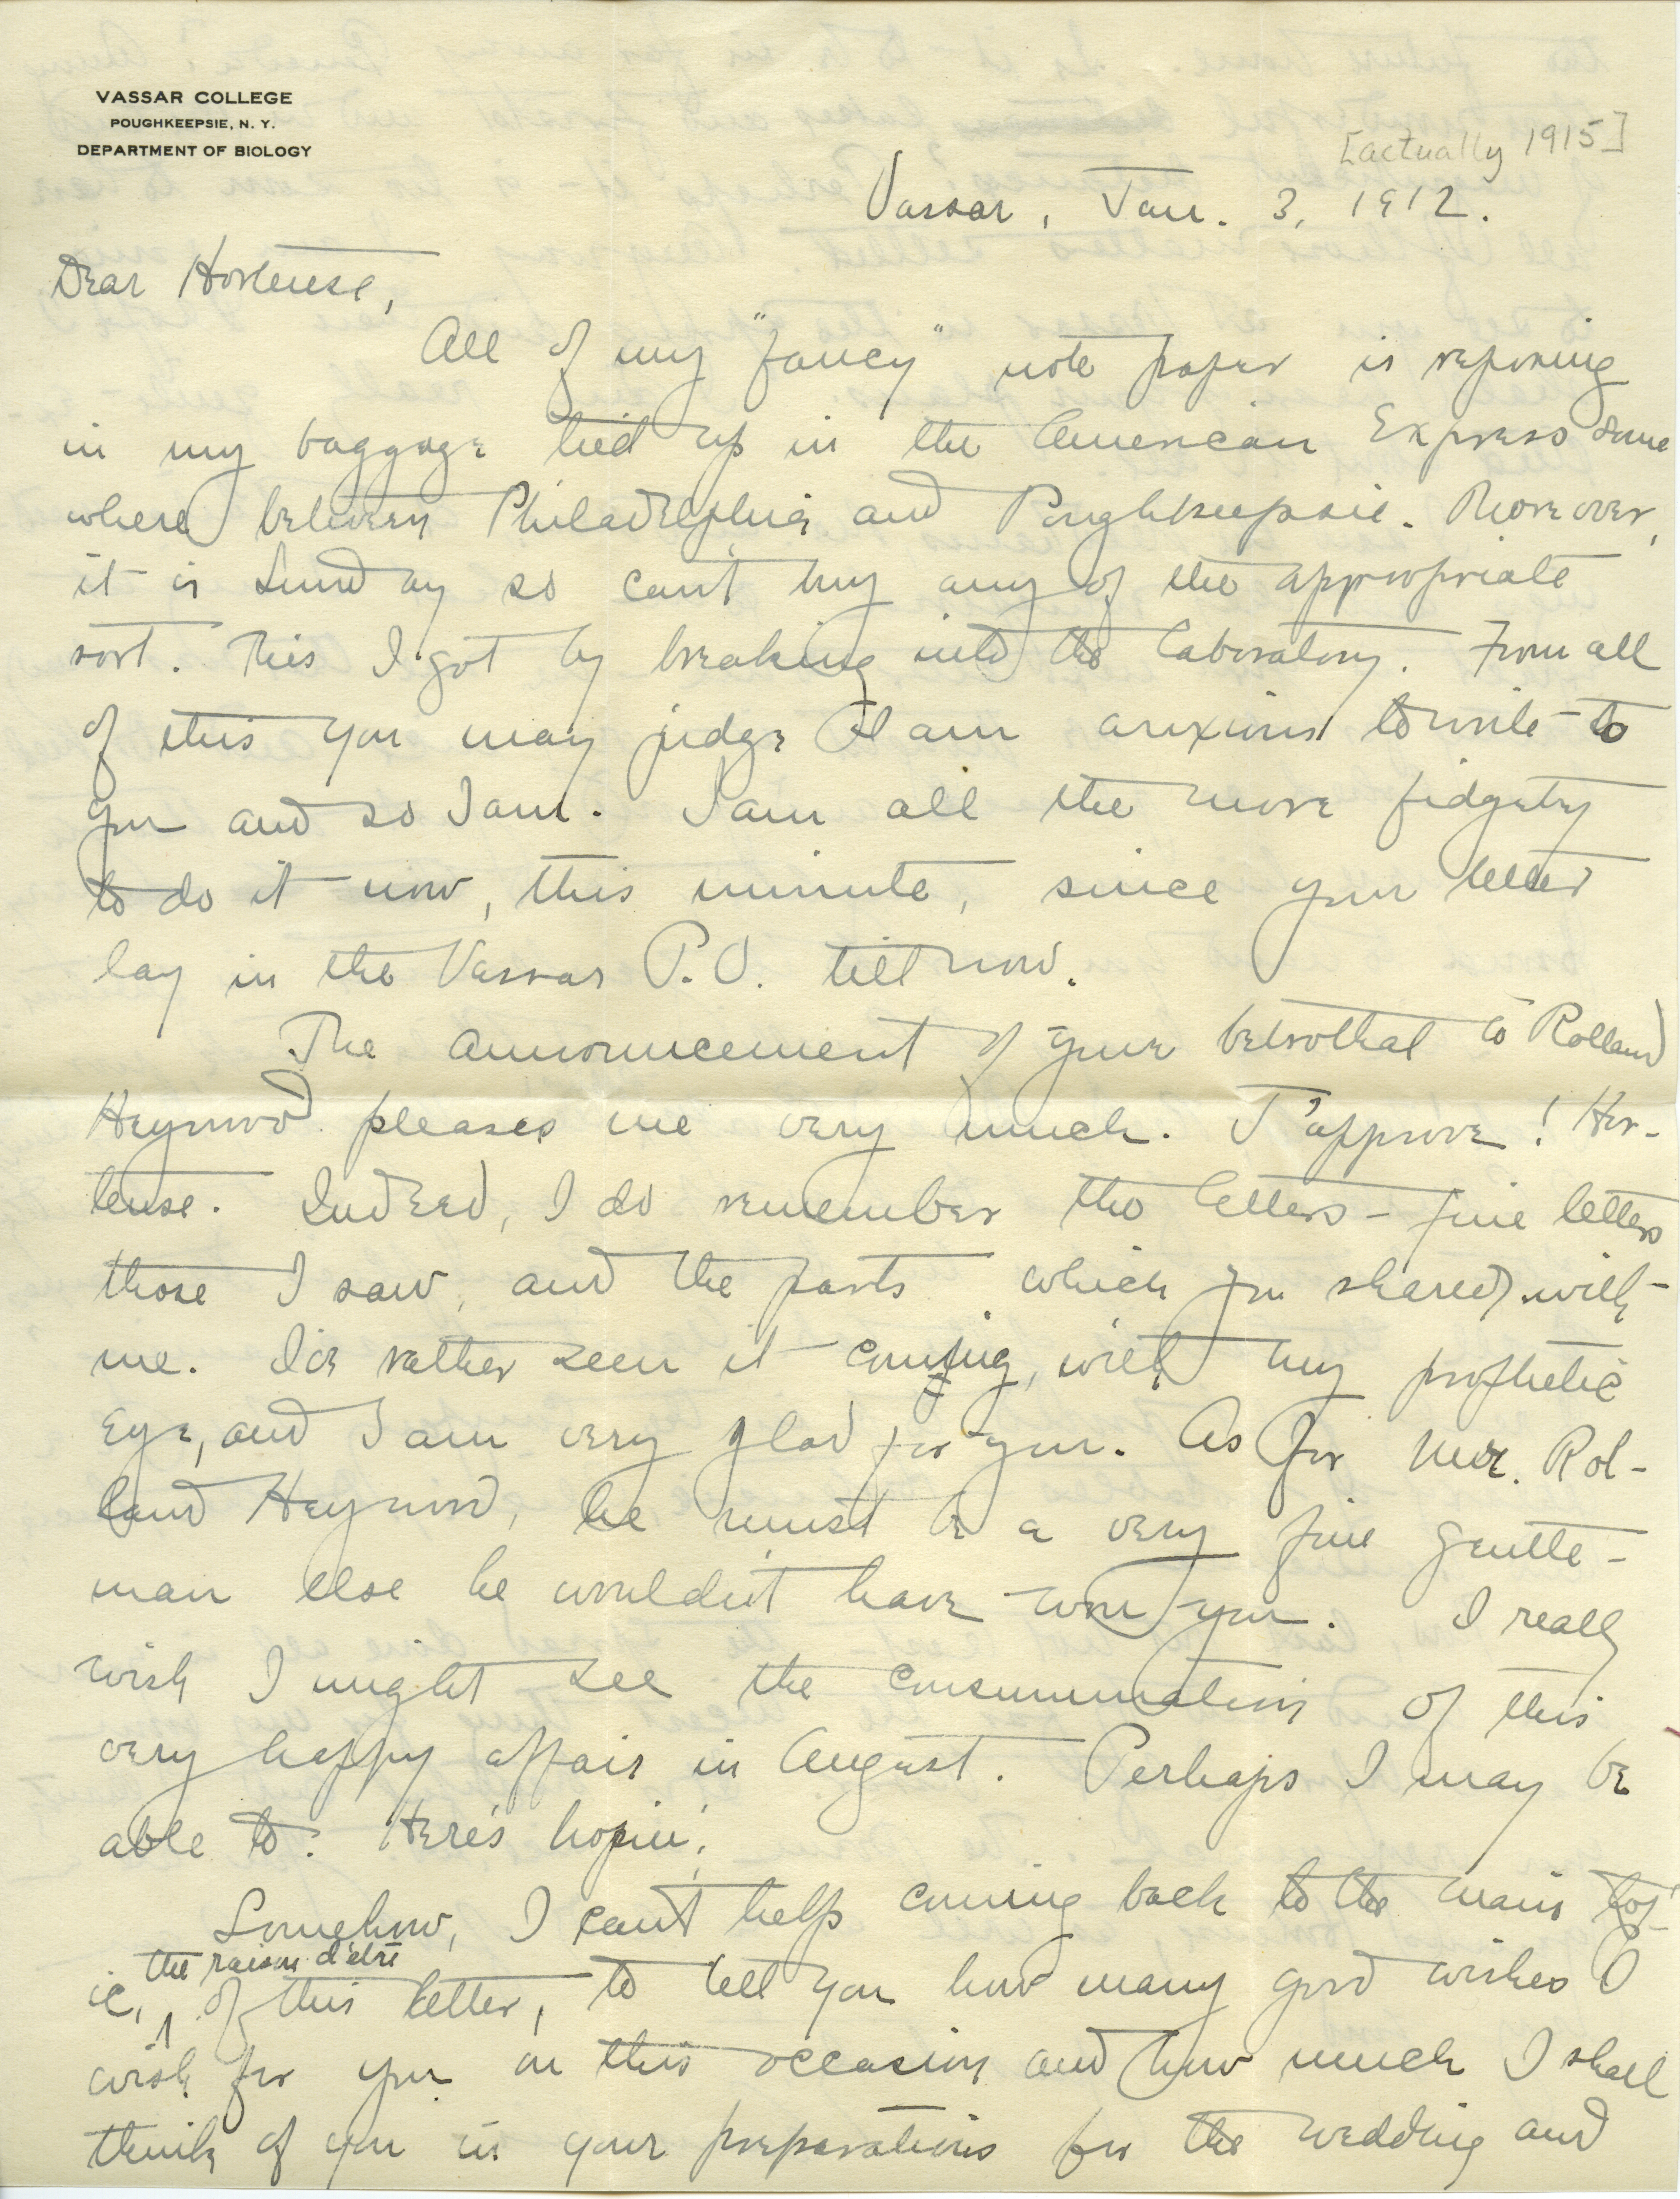 VASSAR COLLEGE
POUGHKEEPSIE, N. Y.
DEPARTMENT OF BIOLOGY
[actually 1915]
Vassar, Jan. 3, 1912.
Dear Hortense,
All of my "fancy" note paper is reposing
in my baggage tied up in the American Express some
where between Philadelphia and Poughkeepsie. Moreover,
it is Sunday so can't buy any of the appropriate
sort. This I got by breaking into the laboratory. From all
of this you may judge I am anxious to write to
you and so I am. I am all the more fidgety
to do it now, this minute, since your letter
lay in the Vassar P.O. till now.
The announcement of your betrothal to Rolland
Heywood pleases me very much. J'approve! Hor-
tense. Indeed, I do remember the letters - fine letters
those I saw, and the parts which you shared with
me. I've rather seen it coming, with my prophetic
eye, and I am very glad for you. As for Mr. Rol-
land Heywood, he must be a very fine gentle-
man else he wouldn't have won you. I really
wish I might see the consummation of this
very happy affair in August. Perhaps I may be
able to. Here's hopin'.
Somehow, I can't help coming back to the main top-
ic, the raison d'être of this letter, to tell you how many good wishes I
wish for you on this occasion and how much I shall
think of you in your preparations for the wedding and